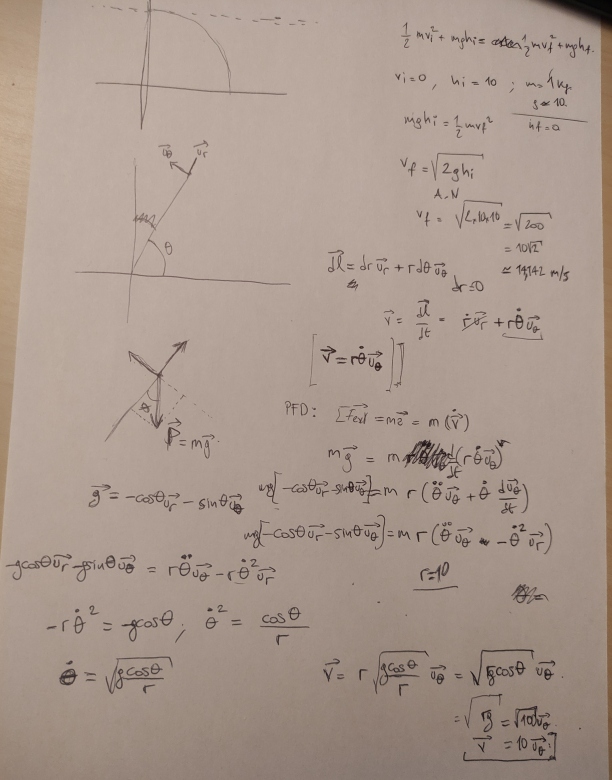 ½ mvi² + mghi = ½ mvf² + mghf.
vi=0, hi = 10 ; m=1 kg
g ≈ 10.
hf=0
mghi = ½ mvf²
vf = √2ghi
A.N
vf = √2×10×10 = √200
= 10√2
≈ 14,142 m/s
u⃗θ u⃗r
θ
d⃗l = dr u⃗r + r dθ u⃗θ
dr=0
v⃗ = d⃗l/dt = ṙu⃗r + rθ̇u⃗θ
[v⃗ = rθ̇u⃗θ]
P⃗ = mg⃗
PFD: ΣF⃗ext = ma⃗ = m(v⃗̇)
mg⃗ = m d/dt(rθ̇u⃗θ)
g⃗ = -cosθu⃗r - sinθu⃗θ
mg[-cosθu⃗r - sinθu⃗θ] = m r (θ̈u⃗θ + θ̇ du⃗θ/dt)
mg[-cosθu⃗r - sinθu⃗θ] = m r (θ̈u⃗θ - θ̇²u⃗r)
-gcosθu⃗r - gsinθu⃗θ = rθ̈u⃗θ - rθ̇²u⃗r
r=10
-rθ̇² = -gcosθ ; θ̇² = cosθ/r
θ̇ = √(gcosθ/r)
v⃗ = r √(gcosθ/r) u⃗θ = √(rgcosθ) u⃗θ.
= √rg = √10u⃗θ.
v⃗ = 10u⃗θ.